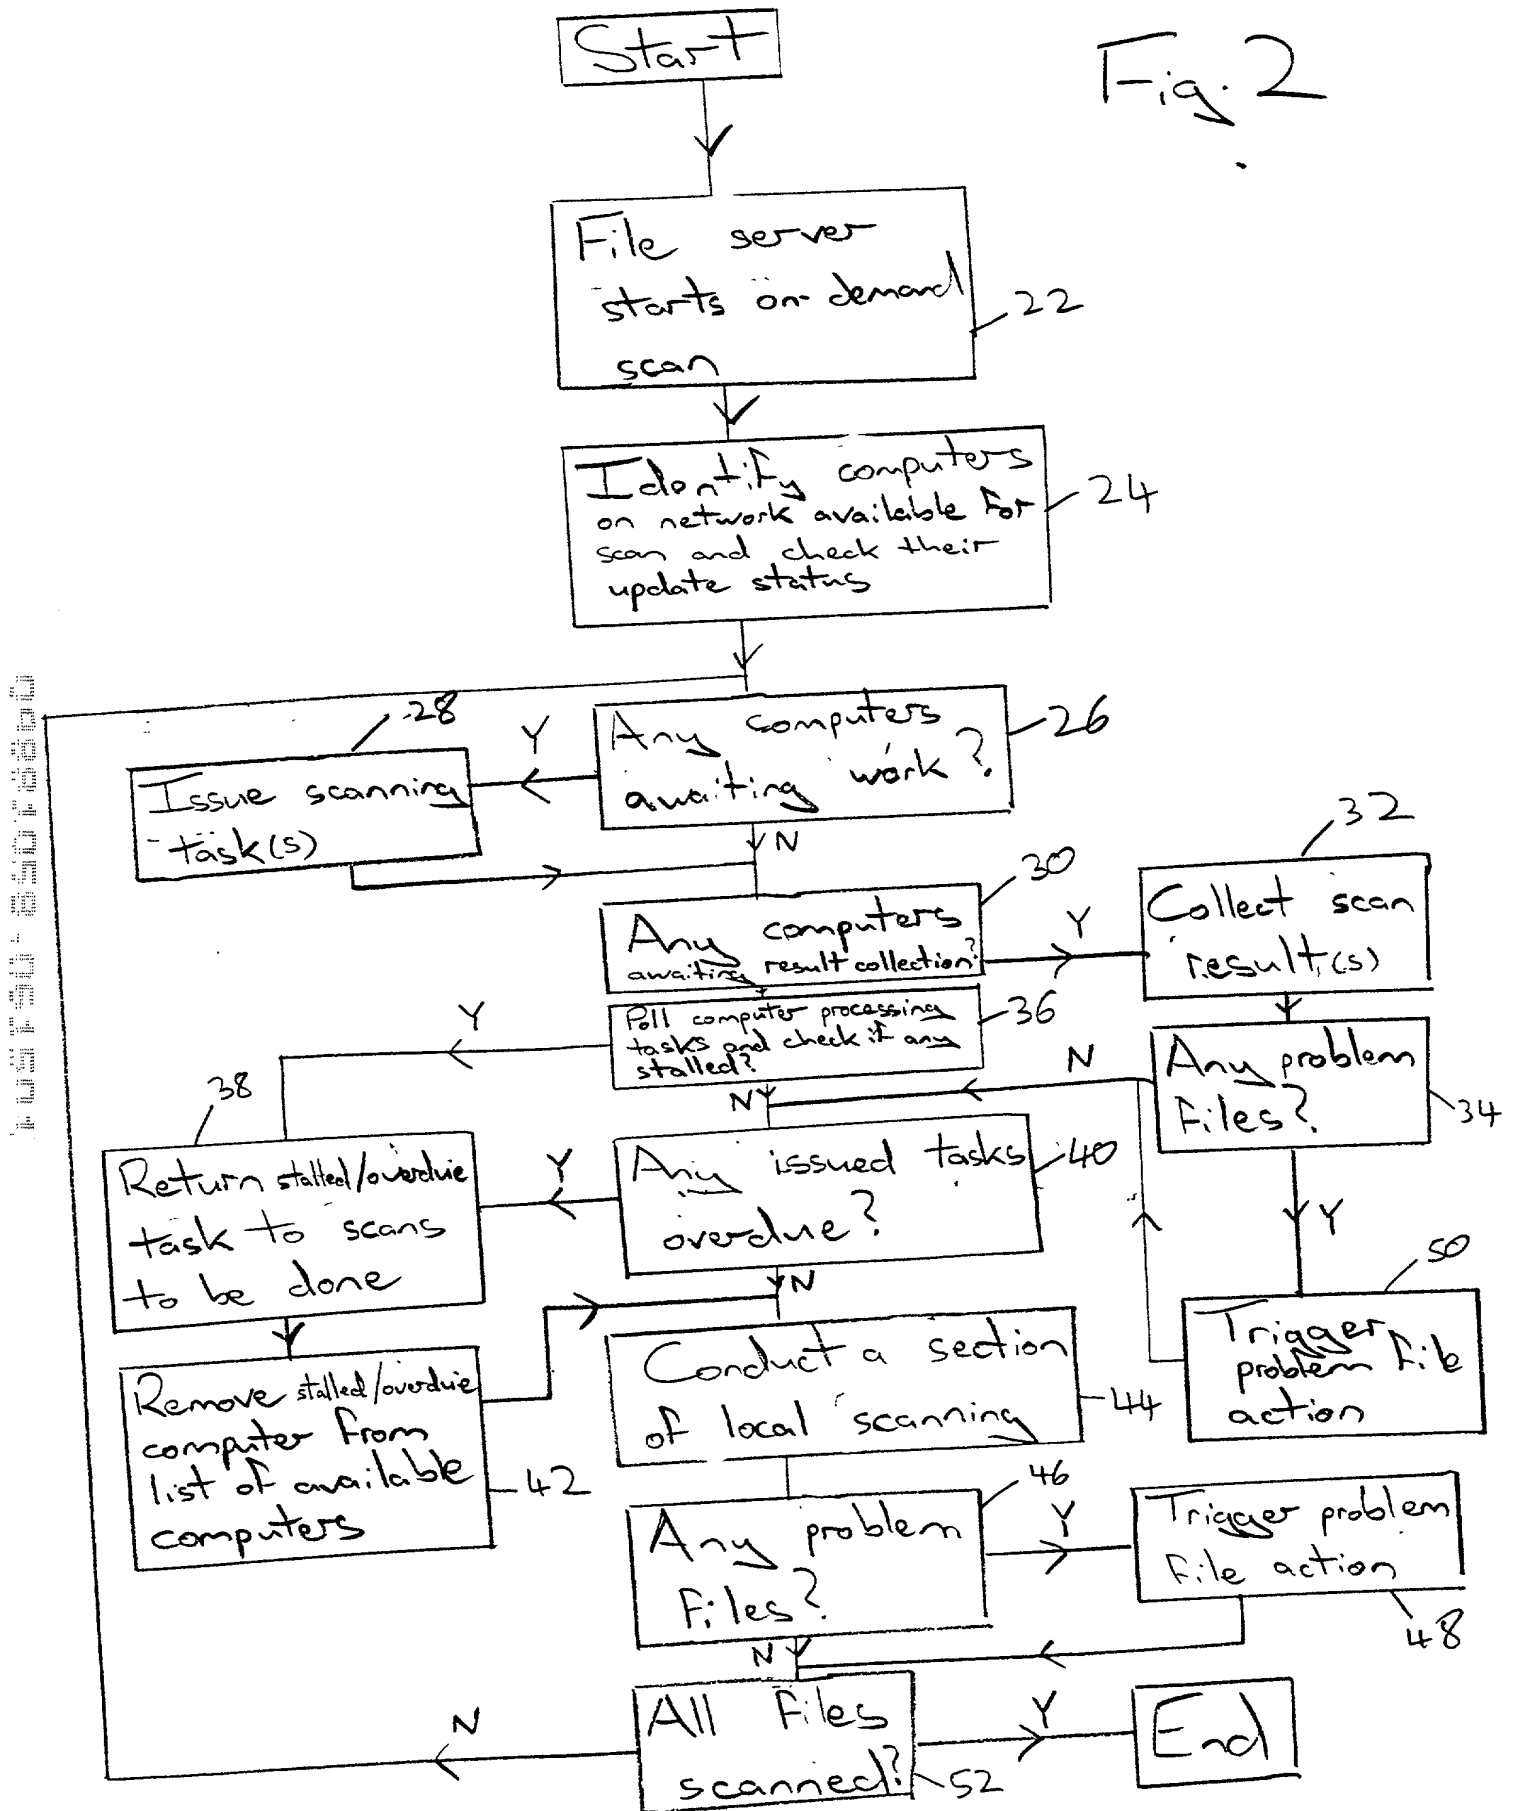 Start
Fig. 2
File server
starts on-demand
scan
22
Identify computers
on network available for
scan and check their
update status
24
28
Y
Any computers
awaiting work?
26
Issue scanning
task(s)
N
32
30
Any computers
awaiting result collection?
Y
Collect scan
result(s)
Y
Poll computer processing
tasks and check if any
stalled?
36
N
Any problem
files?
34
38
N
Return stalled/overdue
task to scans
to be done
Y
Any issued tasks
overdue?
40
Y
50
N
Trigger
problem file
action
Remove stalled/overdue
computer from
list of available
computers
42
Conduct a section
of local scanning
44
46
Any problem
files?
Y
Trigger problem
file action
48
N
N
All files
scanned?
52
Y
End